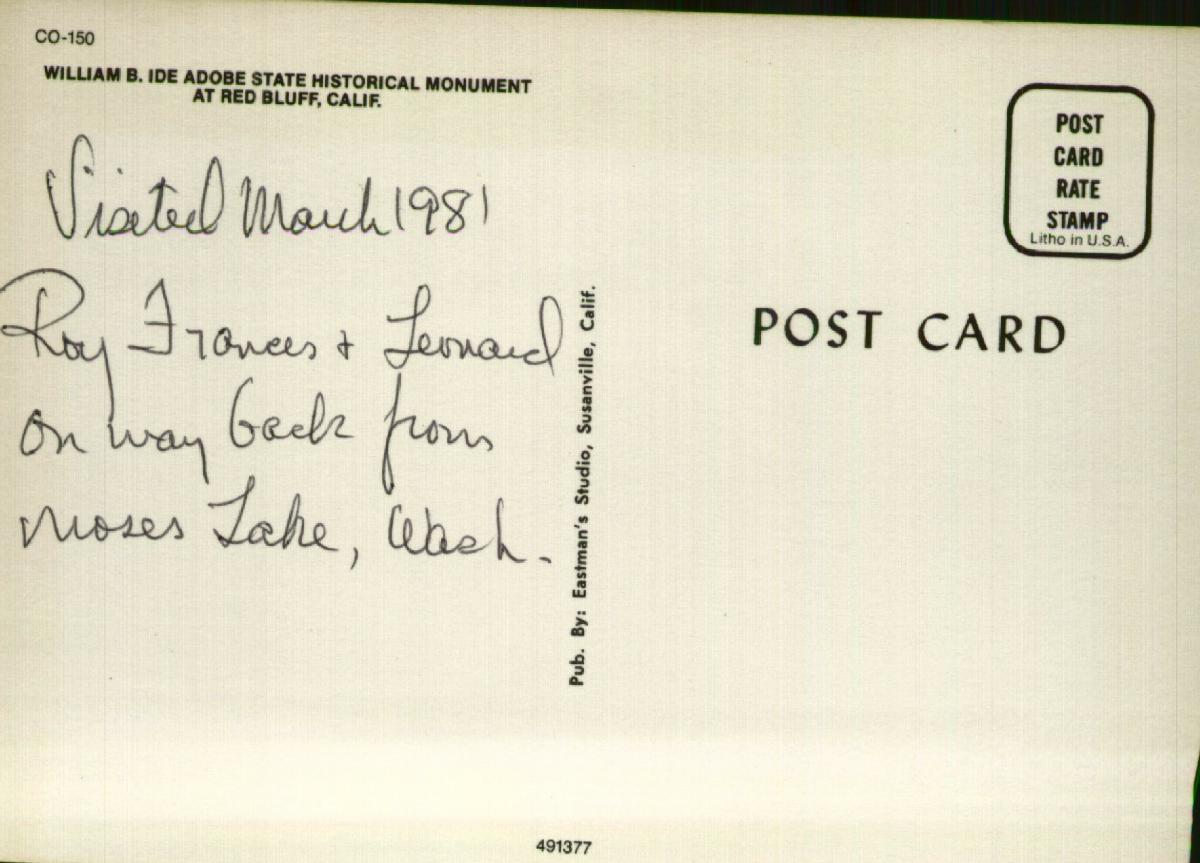 CO-150
WILLIAM B. IDE ADOBE STATE HISTORICAL MONUMENT
AT RED BLUFF, CALIF.
Visited March 1981
Roy Frances + Leonard
on way back from
Moses Lake, Wash.
Pub. By: Eastman's Studio, Susanville, Calif.
POST
CARD
RATE
STAMP
Litho in U.S.A.
POST CARD
491377